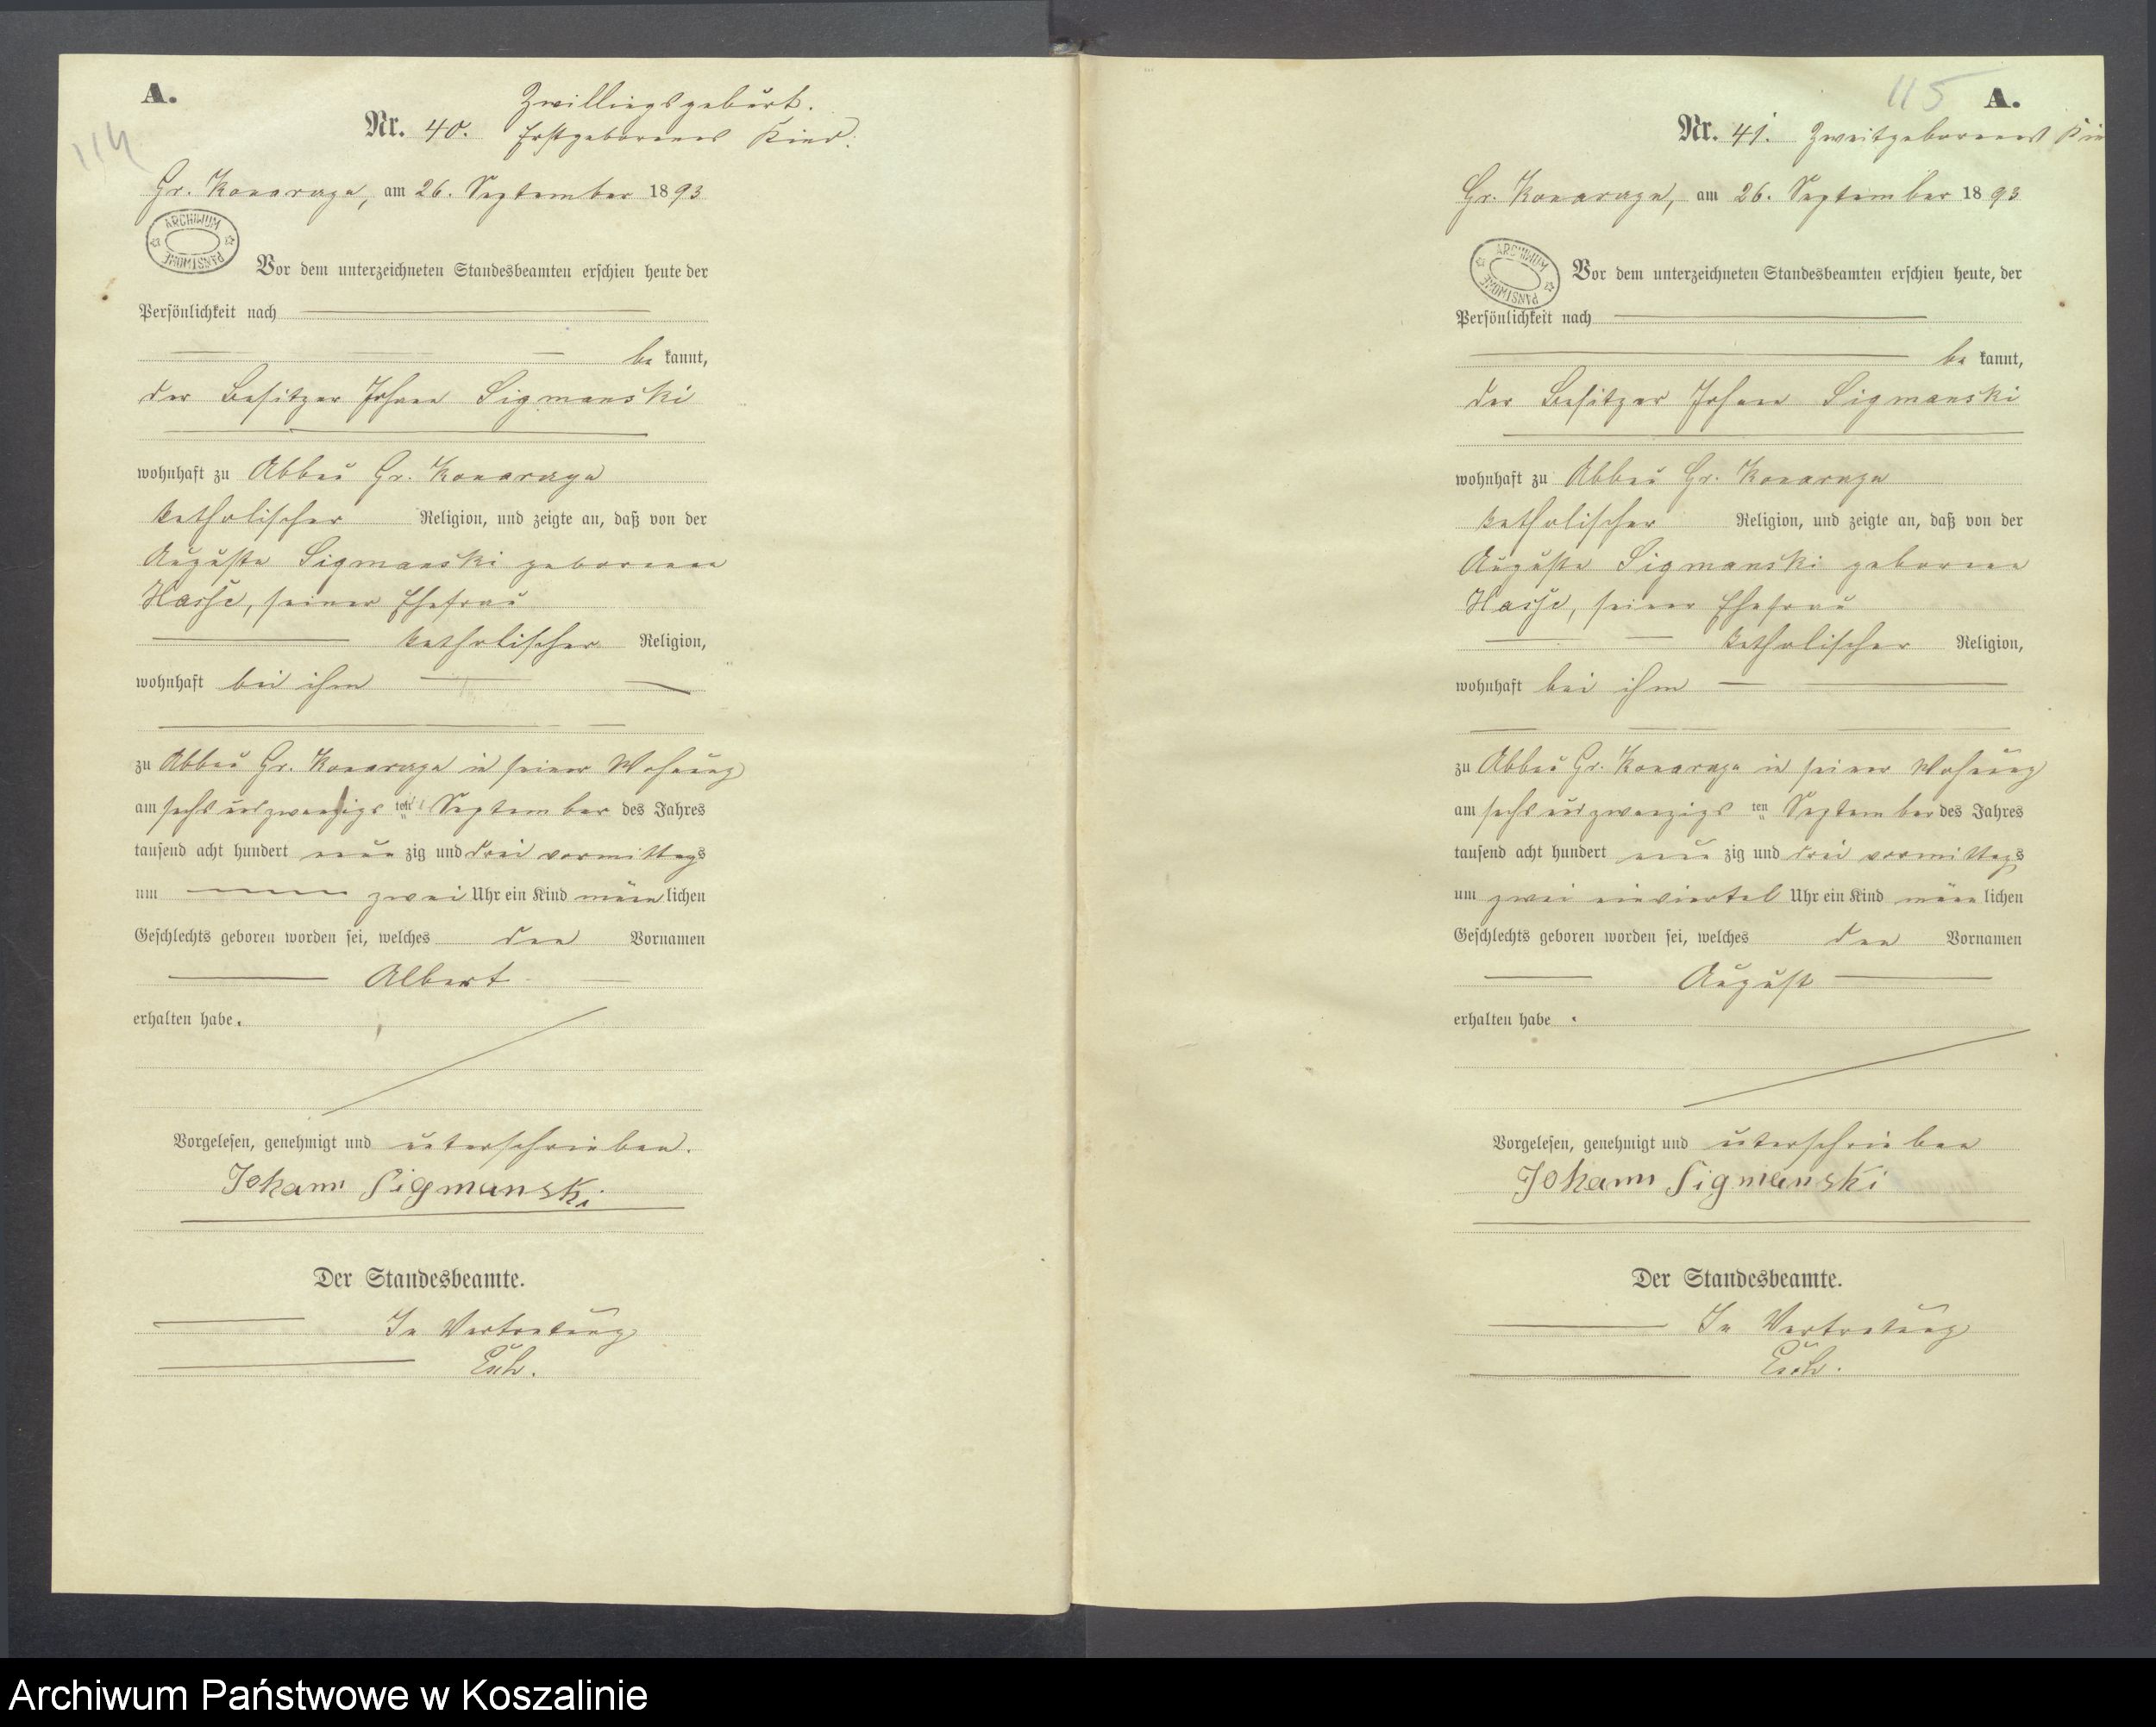 A.
114
Zwillingsgeburt.
Nr. 40. Erstgeborenes Kind.
Gr. Konarczyn, am 26. September 1893
ARCHIWUM PAŃSTWOWE
Vor dem unterzeichneten Standesbeamten erschien heute der
Persönlichkeit nach
be kannt,
der Besitzer Johann Sigmanski
wohnhaft zu Abbau Gr. Konarczyn
katholischer Religion, und zeigte an, daß von der
Auguste Sigmanski geborenen
Hasse, seiner Ehefrau
katholischer Religion,
wohnhaft bei ihm
zu Abbau Gr. Konarczyn in seiner Wohnung
am sechsundzwanzigs ten September des Jahres
tausend acht hundert neun zig und drei vormittags
um zwei Uhr ein Kind männ lichen
Geschlechts geboren worden sei, welches den Vornamen
Albert
erhalten habe.
Vorgelesen, genehmigt und unterschrieben.
Johann Sigmanski
Der Standesbeamte.
In Vertretung
115 A.
Nr. 41. Zweitgeborenes Kin
Gr. Konarczyn, am 26. September 1893
ARCHIWUM PAŃSTWOWE
Vor dem unterzeichneten Standesbeamten erschien heute, der
Persönlichkeit nach
be kannt,
der Besitzer Johann Sigmanski
wohnhaft zu Abbau Gr. Konarczyn
katholischer Religion, und zeigte an, daß von der
Auguste Sigmanski geborenen
Hasse, seiner Ehefrau
katholischer Religion,
wohnhaft bei ihm
zu Abbau Gr. Konarczyn in seiner Wohnung
am sechsundzwanzigs ten September des Jahres
tausend acht hundert neun zig und drei vormittags
um zwei einviertel Uhr ein Kind männ lichen
Geschlechts geboren worden sei, welches den Vornamen
August
erhalten habe.
Vorgelesen, genehmigt und unterschrieben
Johann Sigmanski
Der Standesbeamte.
In Vertretung
Archiwum Państwowe w Koszalinie